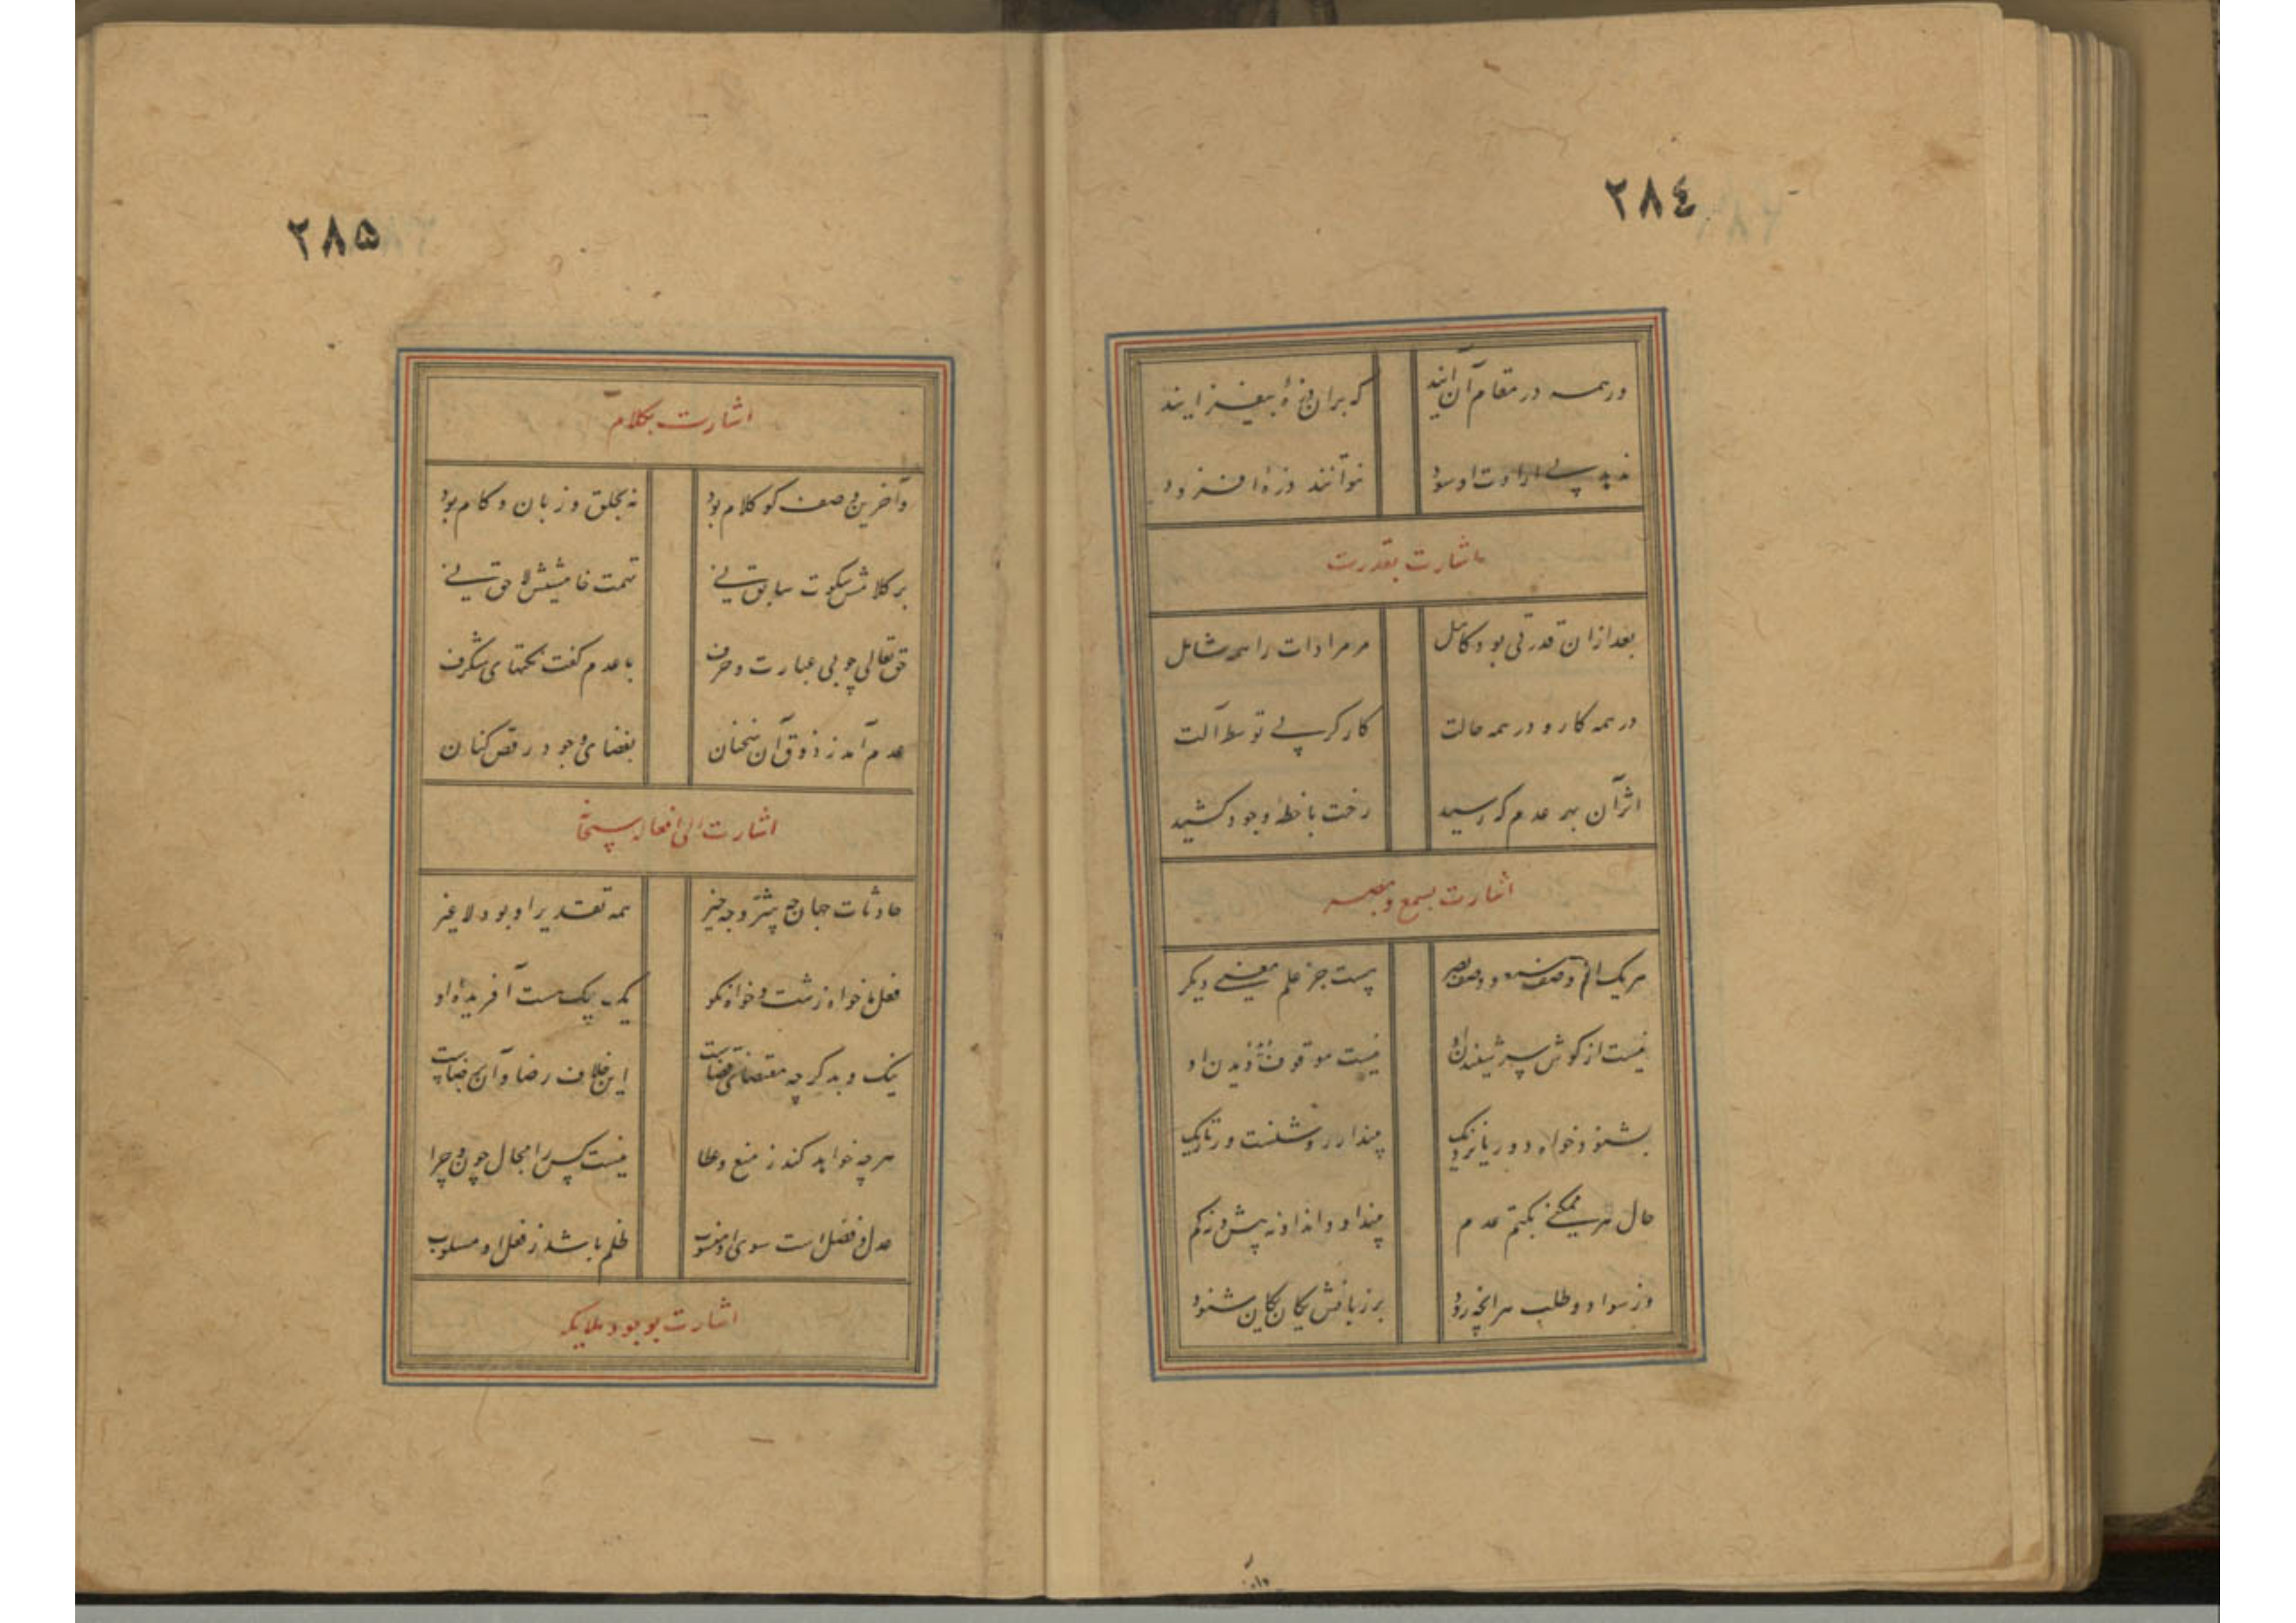 ۲۸٤
ور همه در مقام آن آیند که بران ذرهٔ بیفزایند
ندهد بی ارادت او سود نتوانند ذرهٔ افزود
اشارت بقدرت
بعد ازان قدرتی بود کامل مر مرادات را همه شامل
در همه کار و در همه حالت کارکر بی توسط آلت
اثر آن بهر عدم که رسید رخت با خطهٔ وجود کشید
اشارت بسمع و بصر
هر یک از وصف سمع و وصف بصر نیست جز علم معنیی دیکر
نیست از کوش سر شنیدن او نیست موقوف دیده دیدن او
بشنود خواه دور یا نزدیک بیند ار روشنست ور تاریک
حال هر ممکنی بکتم عدم بیند او داند او نه بیش و نه کم
وز سؤال و طلب هر آنچه رود بر زبانش یکان یکان شنود
۲۸۵
اشارت بکلام
وآخرین وصف کو کلام بود نه بحلق و زبان و کام بود
بر کلامش سکوت سابق نی تهمت خامشیش لاحق نی
حق تعالی چو بی عبارت و حرف با عدم کفت نکتهای شکرف
عدم آمد ز ذوق آن سخنان بفضای وجود رقص کنان
اشارت الی افعاله سبحانه
حادثات جهان چه شر و چه خیر همه تقدیر او بود لا غیر
فعل ما خواه زشت و خواه نکو یک بیک هست آفریدهٔ او
نیک و بد کرچه مقتضای قضاست این خلاف رضا و آن برضاست
هر چه خواهد کند ز منع و عطا نیست کس را مجال چون و چرا
عدل و فضل است سوی او منسوب ظلم باشد ز فعل او مسلوب
اشارت بوجود ملایکه